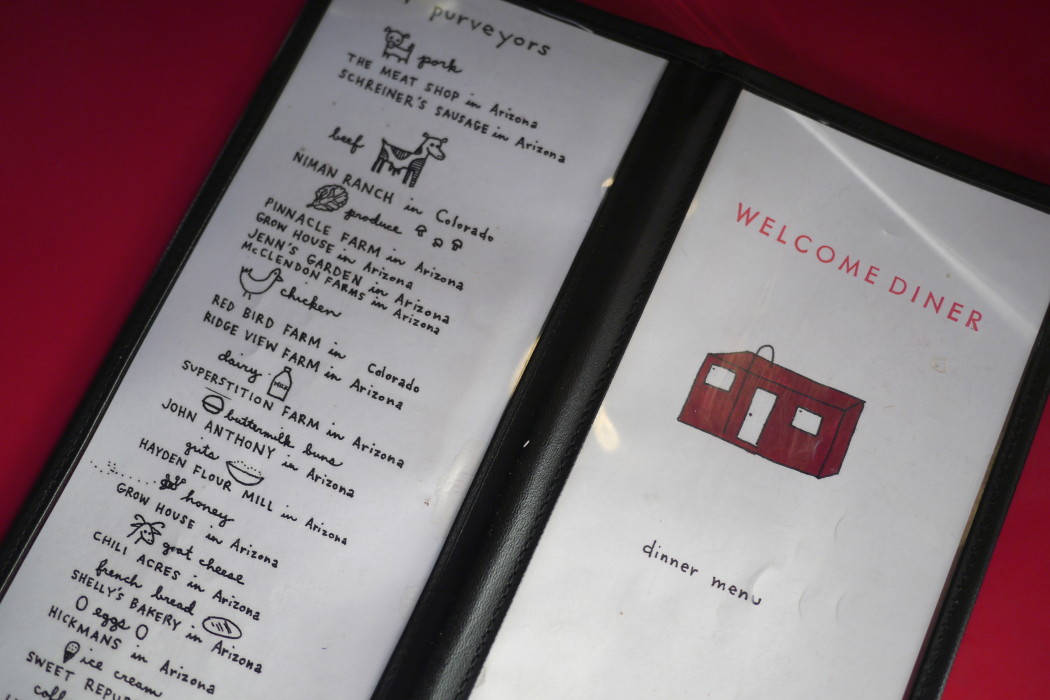 purveyors
pork
THE MEAT SHOP in Arizona
SCHREINER'S SAUSAGE in Arizona
beef
NIMAN RANCH in Colorado
produce
PINNACLE FARM in Arizona
GROW HOUSE in Arizona
JENN'S GARDEN in Arizona
McCLENDON FARMS in Arizona
chicken
RED BIRD FARM in Colorado
RIDGE VIEW FARM in Arizona
dairy
MILK
SUPERSTITION FARM in Arizona
buttermilk buns
JOHN ANTHONY in Arizona
grits
HAYDEN FLOUR MILL in Arizona
honey
GROW HOUSE in Arizona
goat cheese
CHILI ACRES in Arizona
french bread
SHELLY'S BAKERY in Arizona
eggs
HICKMANS in Arizona
ice cream
SWEET
WELCOME DINER
dinner menu